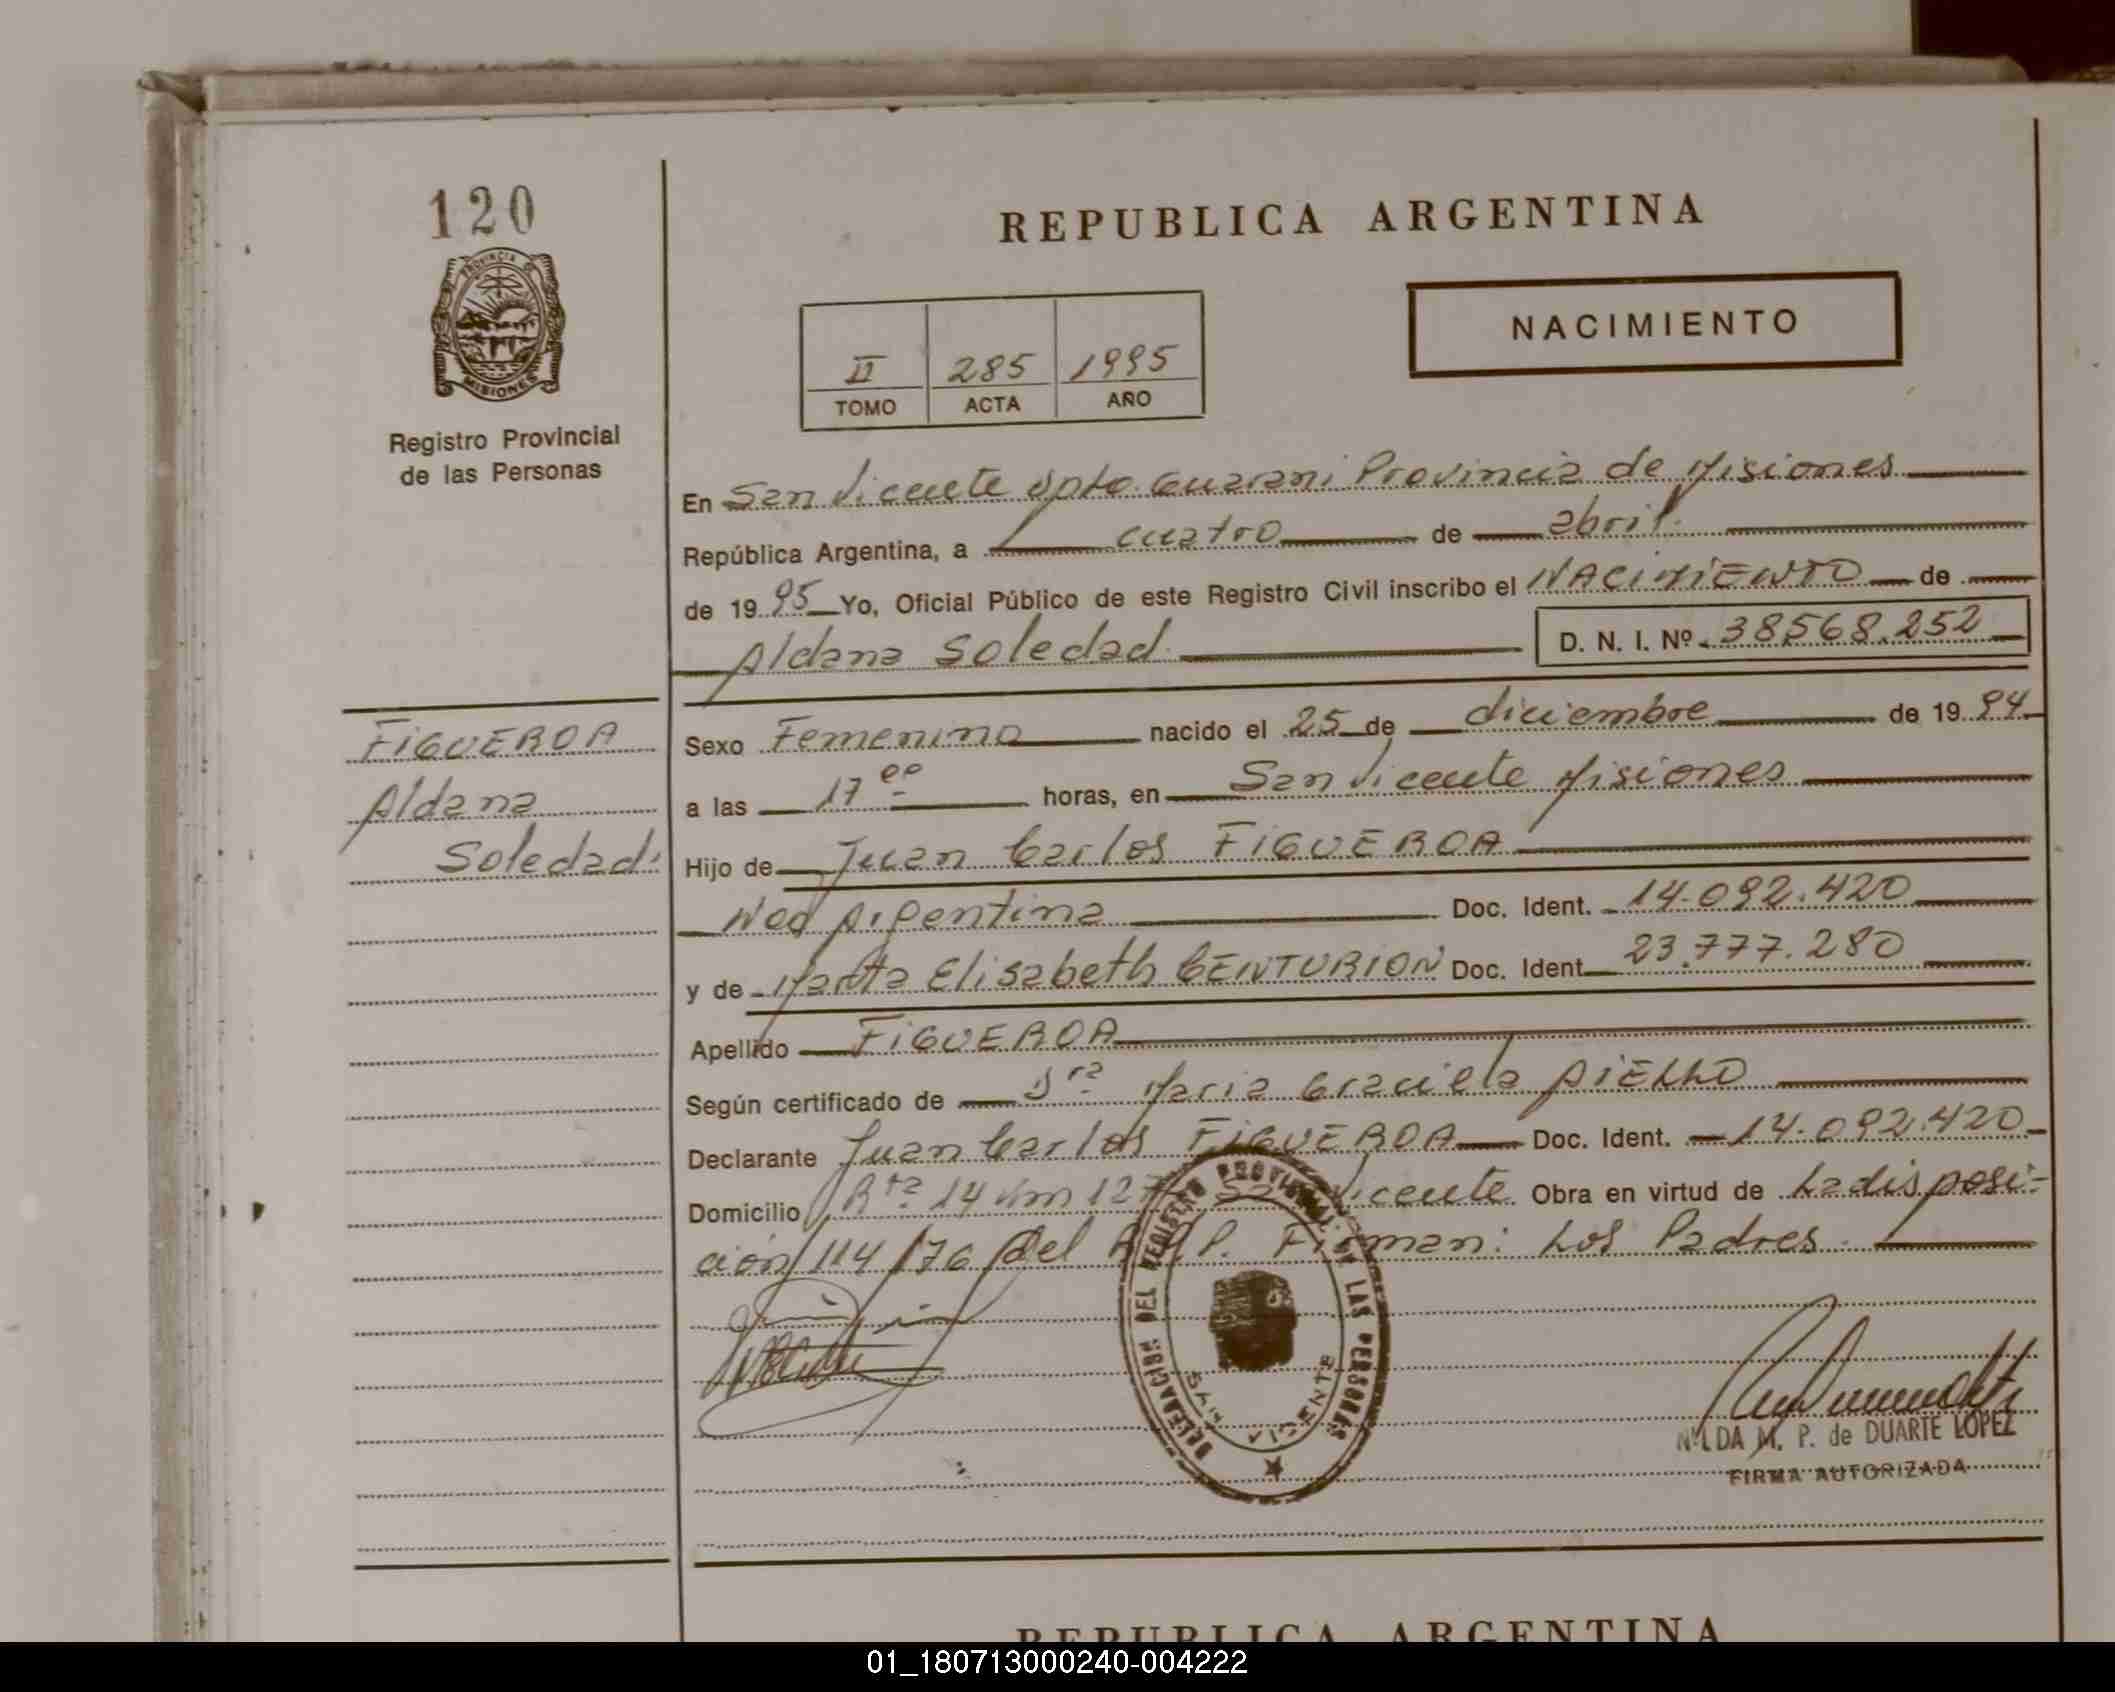 120
PROVINCIA DE
MISIONES
Registro Provincial
de las Personas
REPUBLICA ARGENTINA
NACIMIENTO
II 285 1995
TOMO ACTA AÑO
En San Vicente Dpto. Guarani Provincia de Misiones
República Argentina, a cuatro de abril
de 1995 Yo, Oficial Público de este Registro Civil inscribo el NACIMIENTO de
Aldana Soledad. D. N. I. Nº 38.568.252
FIGUEROA
Aldana
Soledad.
Sexo Femenino nacido el 25 de diciembre de 1994
a las 17 00 horas, en San Vicente Misiones
Hijo de Juan Carlos FIGUEROA
Nac Argentina Doc. Ident. 14.092.420
y de Marta Elisabeth CENTURION Doc. Ident 23.777.280
Apellido FIGUEROA
Según certificado de Dra Maria Graciela AIELLO
Declarante Juan Carlos FIGUEROA Doc. Ident. 14.092.420
Domicilio Rta 14 Km 127 San Vicente Obra en virtud de La disposi-
ción 114/76 del R.P.P. Firman: Los Padres.
DELEGACION DEL REGISTRO PROVINCIAL DE LAS PERSONAS
SAN VICENTE
NILDA M. P. de DUARTE LOPEZ
FIRMA AUTORIZADA
REPUBLICA ARGENTINA
01_180713000240-004222